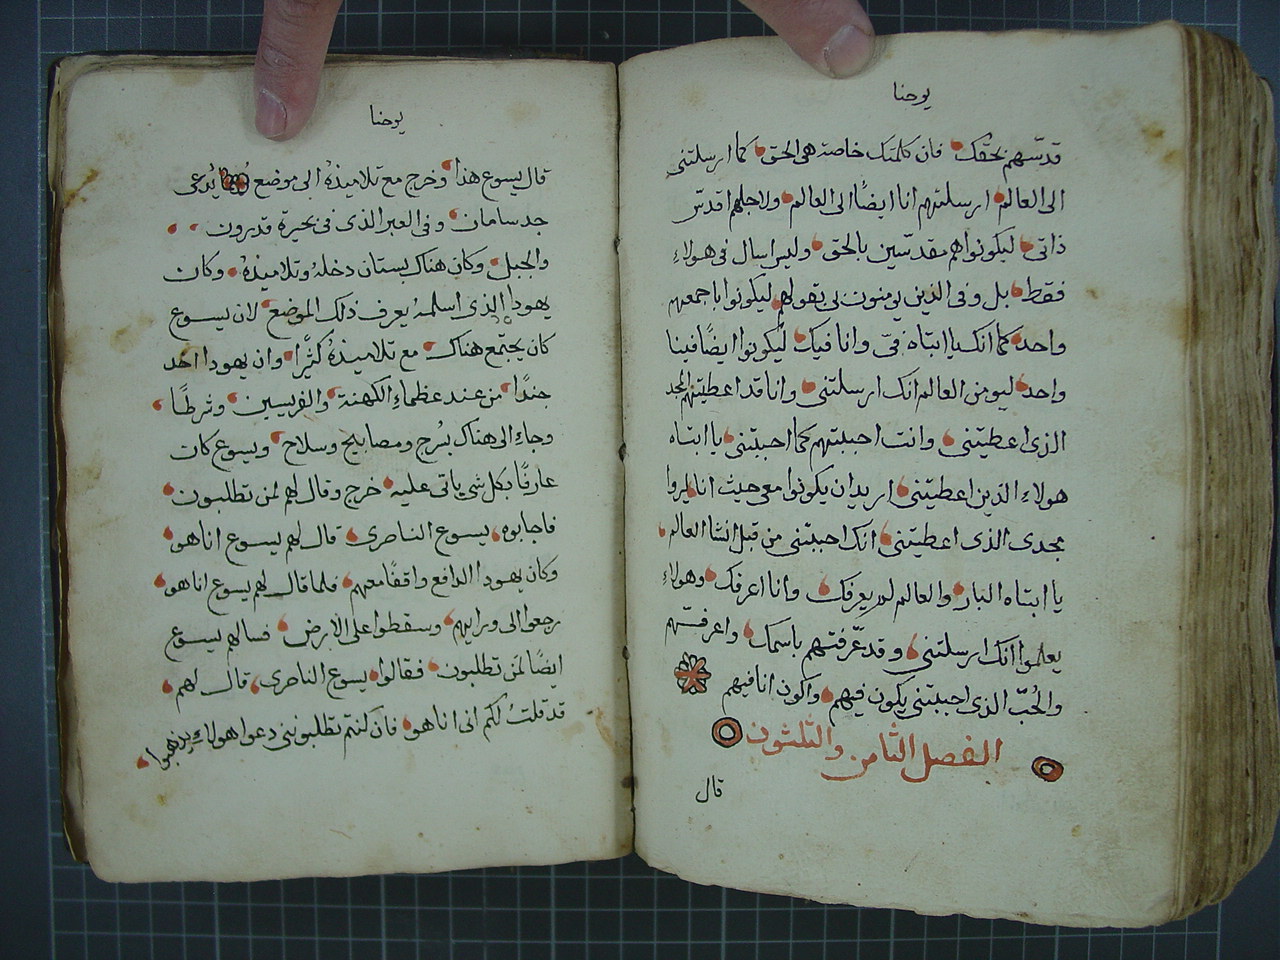 يوحنا
قدسّهم بحقّك فان كلمتك خاصة هى الحق كما ارسلتنى
الى العالم ارسلتهم انا ايضًا الى العالم ولاجلهم اقدسّ
ذاتى ليكونوا هم مقدسّين بالحق وليس اسال فى هولاءِ
فقط بل وفى الذين يومنون بى بقولهم ليكونوا باجمعهم
واحد كما انك يا ابتاه فىّ وانا فيك ليكونوا ايضًا فينا
واحد ليومن العالم انك ارسلتنى وانا قد اعطيتهم المجد
الذى اعطيتنى وانت احببتهم كما احببتنى يا ابتاه
هولاءِ الذين اعطيتنى اريد ان يكونوا معى حيث انا ليروا
مجدى الذى اعطيتنى انك احببتنى من قبل انشا العالم
يا ابتاه البار والعالم لم يعرفك وانا اعرفك وهولاءِ
يعلموا انك ارسلتنى وقد عرّفتهم باسمك واعرفهم
والحُبّ الذى احببتنى يكون فيهم واكون انا فيهم
الفصل الثامن والثلثون
قال
يوحنا
قال يسوع هذا وخرج مع تلاميذهُ الى موضع يُدعى
جدسامان وفى العبر الذى فى بحيرة قدرون
والجبل وكان هناك بستان دخلهُ وتلاميذهُ وكان
يهودا الذى اسلمهُ يعرف ذلك الموضع لان يسوع
كان يجتمع هناك مع تلاميذهُ كثيًرا وان يهودا اخد
جندًا من عند عظماءِ الكهنة والفريسين وشرطًا
وجاءَ الى هناك بسُرج ومصابيح وسلاح ويسوع كان
عارفًا بكل شى ياتى عليه خرج وقال لهم لمن تطلبون
فاجابوه يسوع الناصرى قال لهم يسوع انا هو
وكان يهودا الدافع واقفًا معهم فلما قال لهم يسوع انا هو
رجعوا الى ورايهم وسقطوا على الارض فسالهم يسوع
ايضًا لمَن تطلبون فقالوا يسوع الناصرى قال لهم
قد قلتُ لكم انى انا هو فان كنتم تطلبونى دعوا هولاءِ يذهبوا